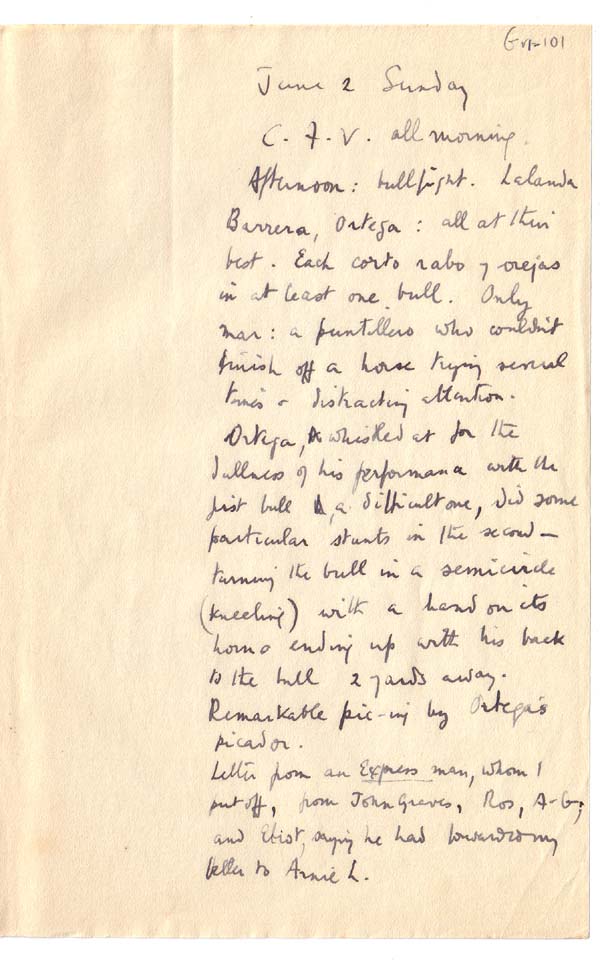 June 2 Sunday
C. F. V. all morning.
Afternoon: bullfight. Lalanda
Barrera, Ortega: all at their
best. Each corto rabo y orejas
in at least one bull. Only
mar: a puntillero who couldn't
finish off a horse trying several
times & distracting attention.
Ortega, whistled at for the
dullness of his performance with the
first bull, a difficult one, did some
particular stunts in the second –
turning the bull in a semicircle
(kneeling) with a hand on its
horns ending up with his back
to the bull 2 yards away.
Remarkable pic-ing by Ortega's
picador.
Letter from an Express man, whom I
put off, from John Graves, Ros, A-G;
and Eliot, saying he had forwarded my
letter to Arnie L.